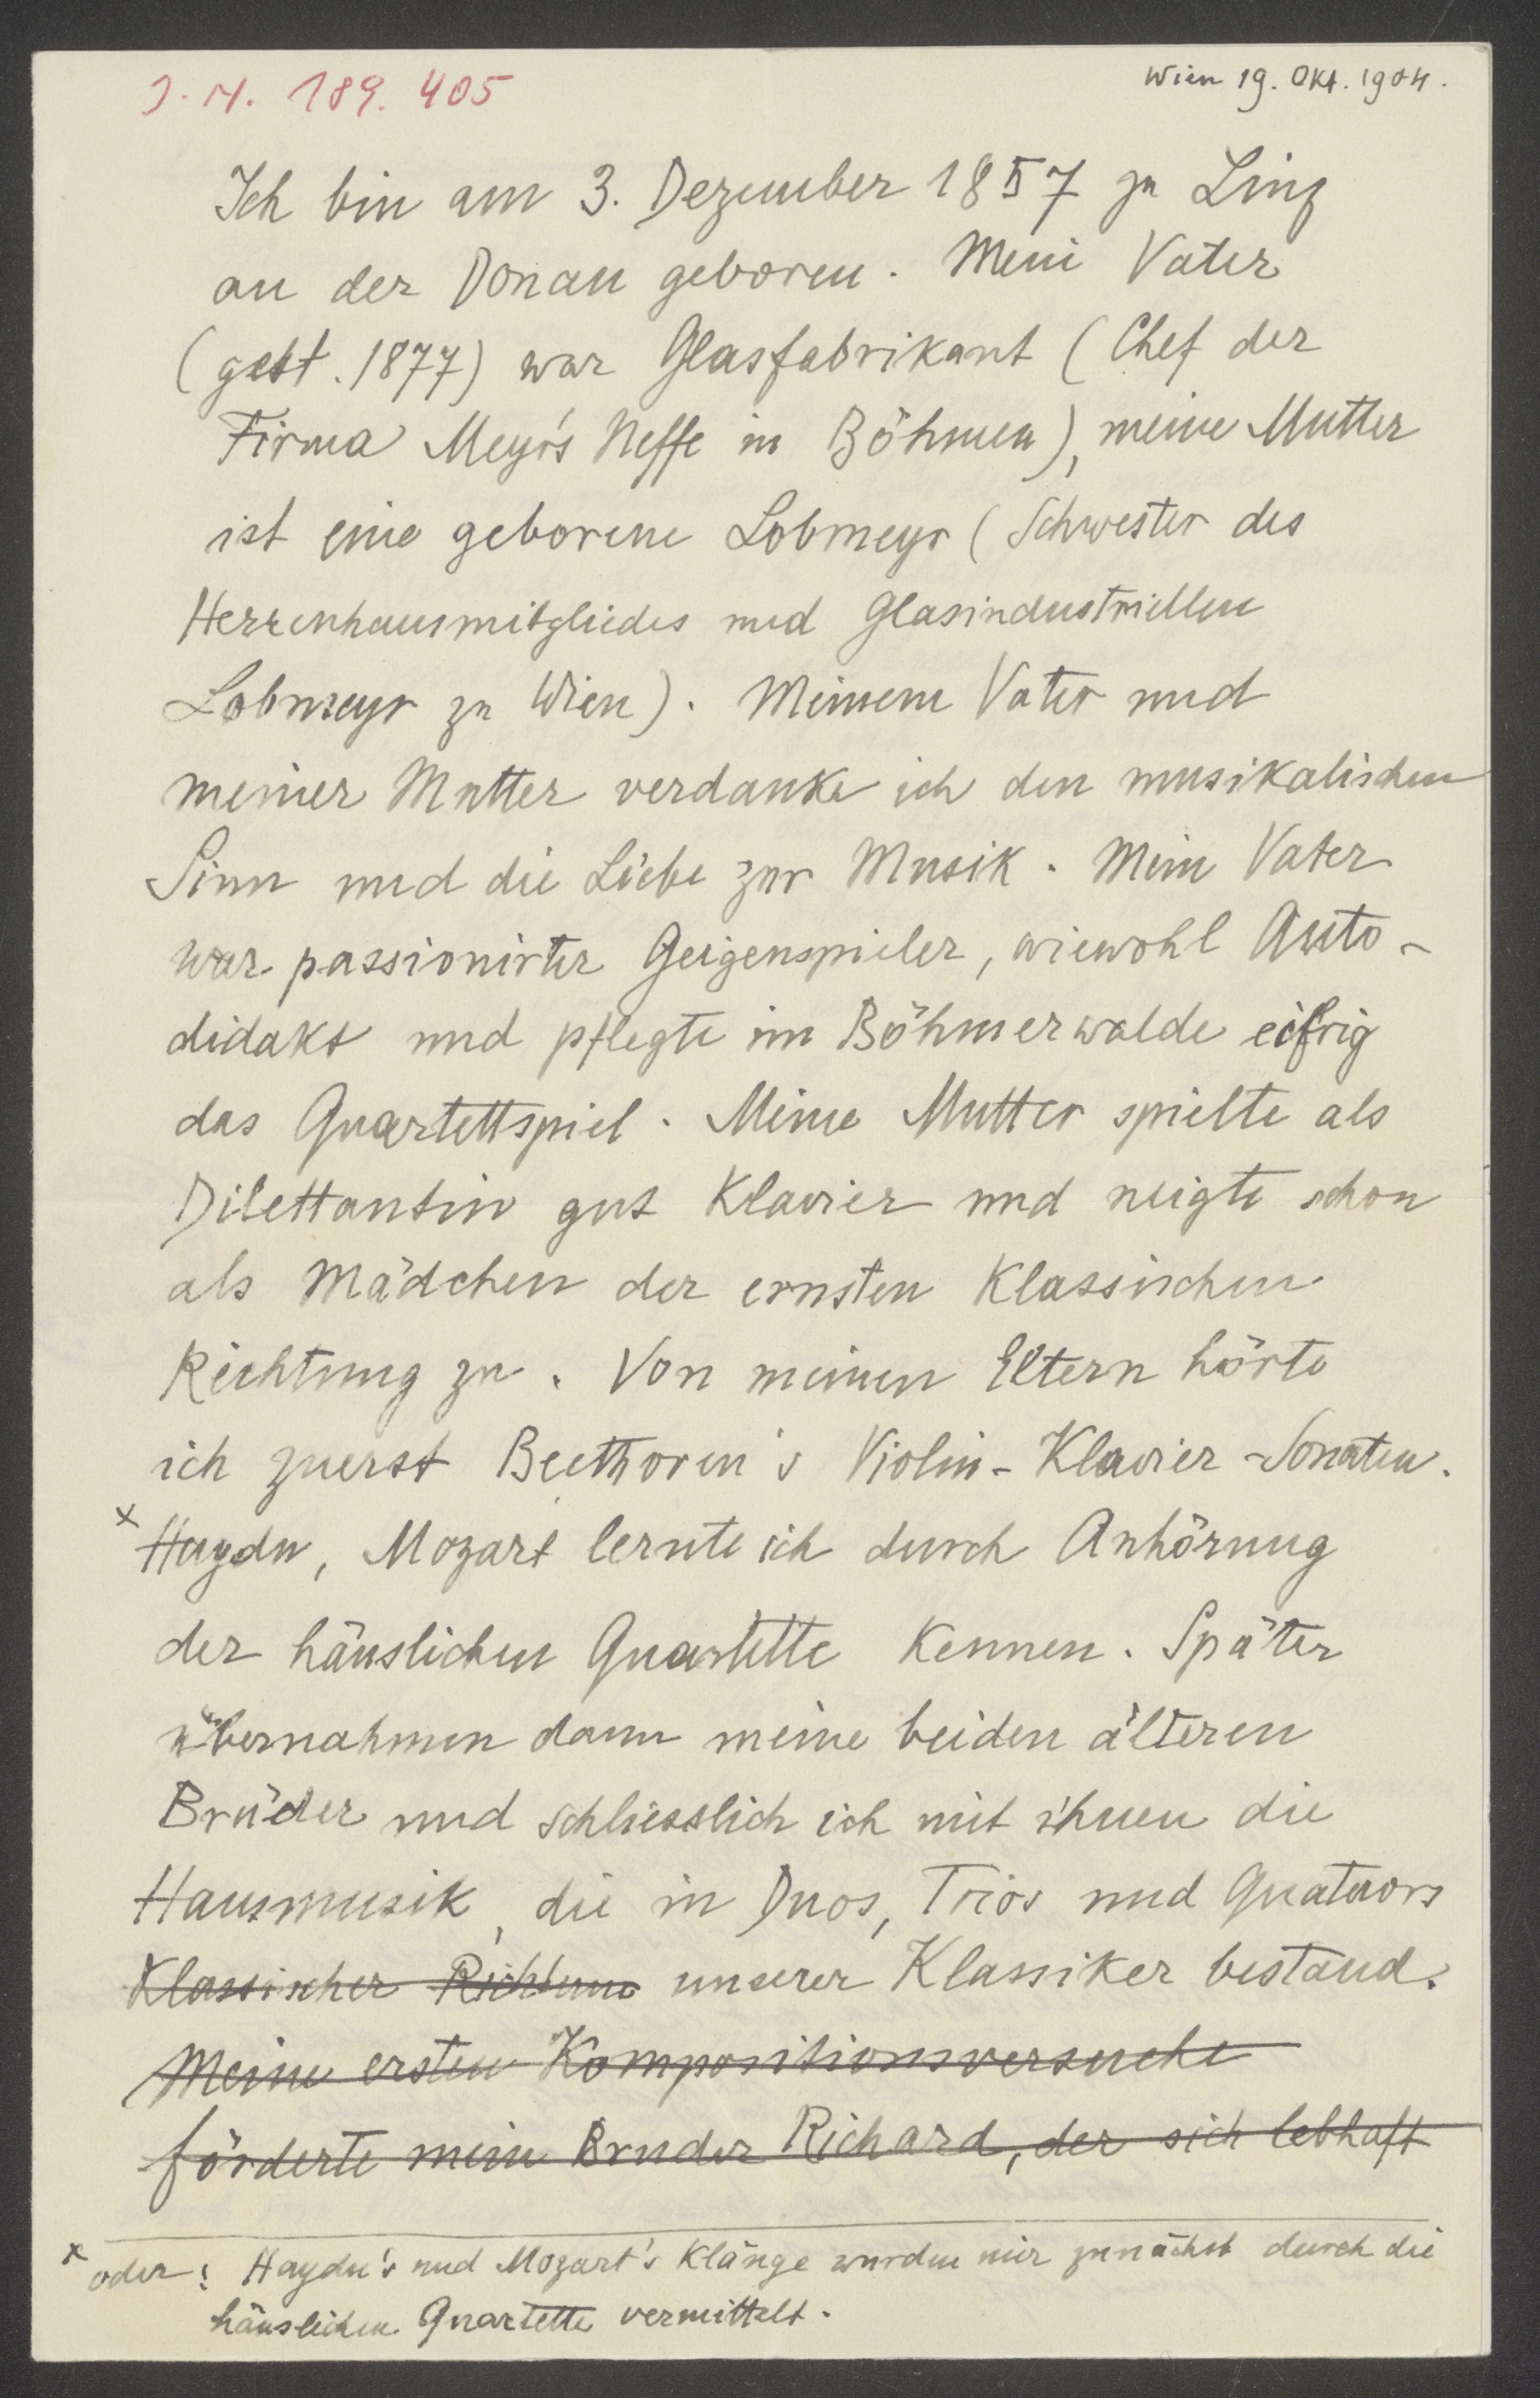 J. N. 189.405
Wien 19. Okt. 1904.
Ich bin am 3. Dezember 1857 zu Linz
an der Donau geboren. Mein Vater
(gest. 1877) war Glasfabrikant (Chef der
Firma Meyr's Neffe in Böhmen), meine Mutter
ist eine geborene Lobmeyr (Schwester des
Herrenhausmitgliedes und Glasindustriellen
Lobmeyr zu Wien). Meinem Vater und
meiner Mutter verdanke ich den musikalischen
Sinn und die Liebe zur Musik. Mein Vater
war passionirter Geigenspieler, wiewohl Auto-
didakt und pflegte im Böhmerwalde eifrig
das Quartettspiel. Meine Mutter spielte als
Dilettantin gut Klavier und neigte schon
als Mädchen der ernsten klassischen
Richtung zu. Von meinen Eltern hörte
ich zuerst Beethoven's Violin-Klavier-Sonaten.
x Haydn, Mozart lernte ich durch Anhörung
der häuslichen Quartette kennen. Später
übernahmen dann meine beiden älteren
Brüder und schliesslich ich mit ihnen die
Hausmusik, die in Duos, Trios und Quatuors
Klassischer Richtung unserer Klassiker bestand.
Meine ersten Kompositionsversuche
förderte mein Bruder Richard, der sich lebhaft
x oder: Haydn's und Mozart's Klänge wurden mir zunächst durch die
häuslichen Quartette vermittelt.